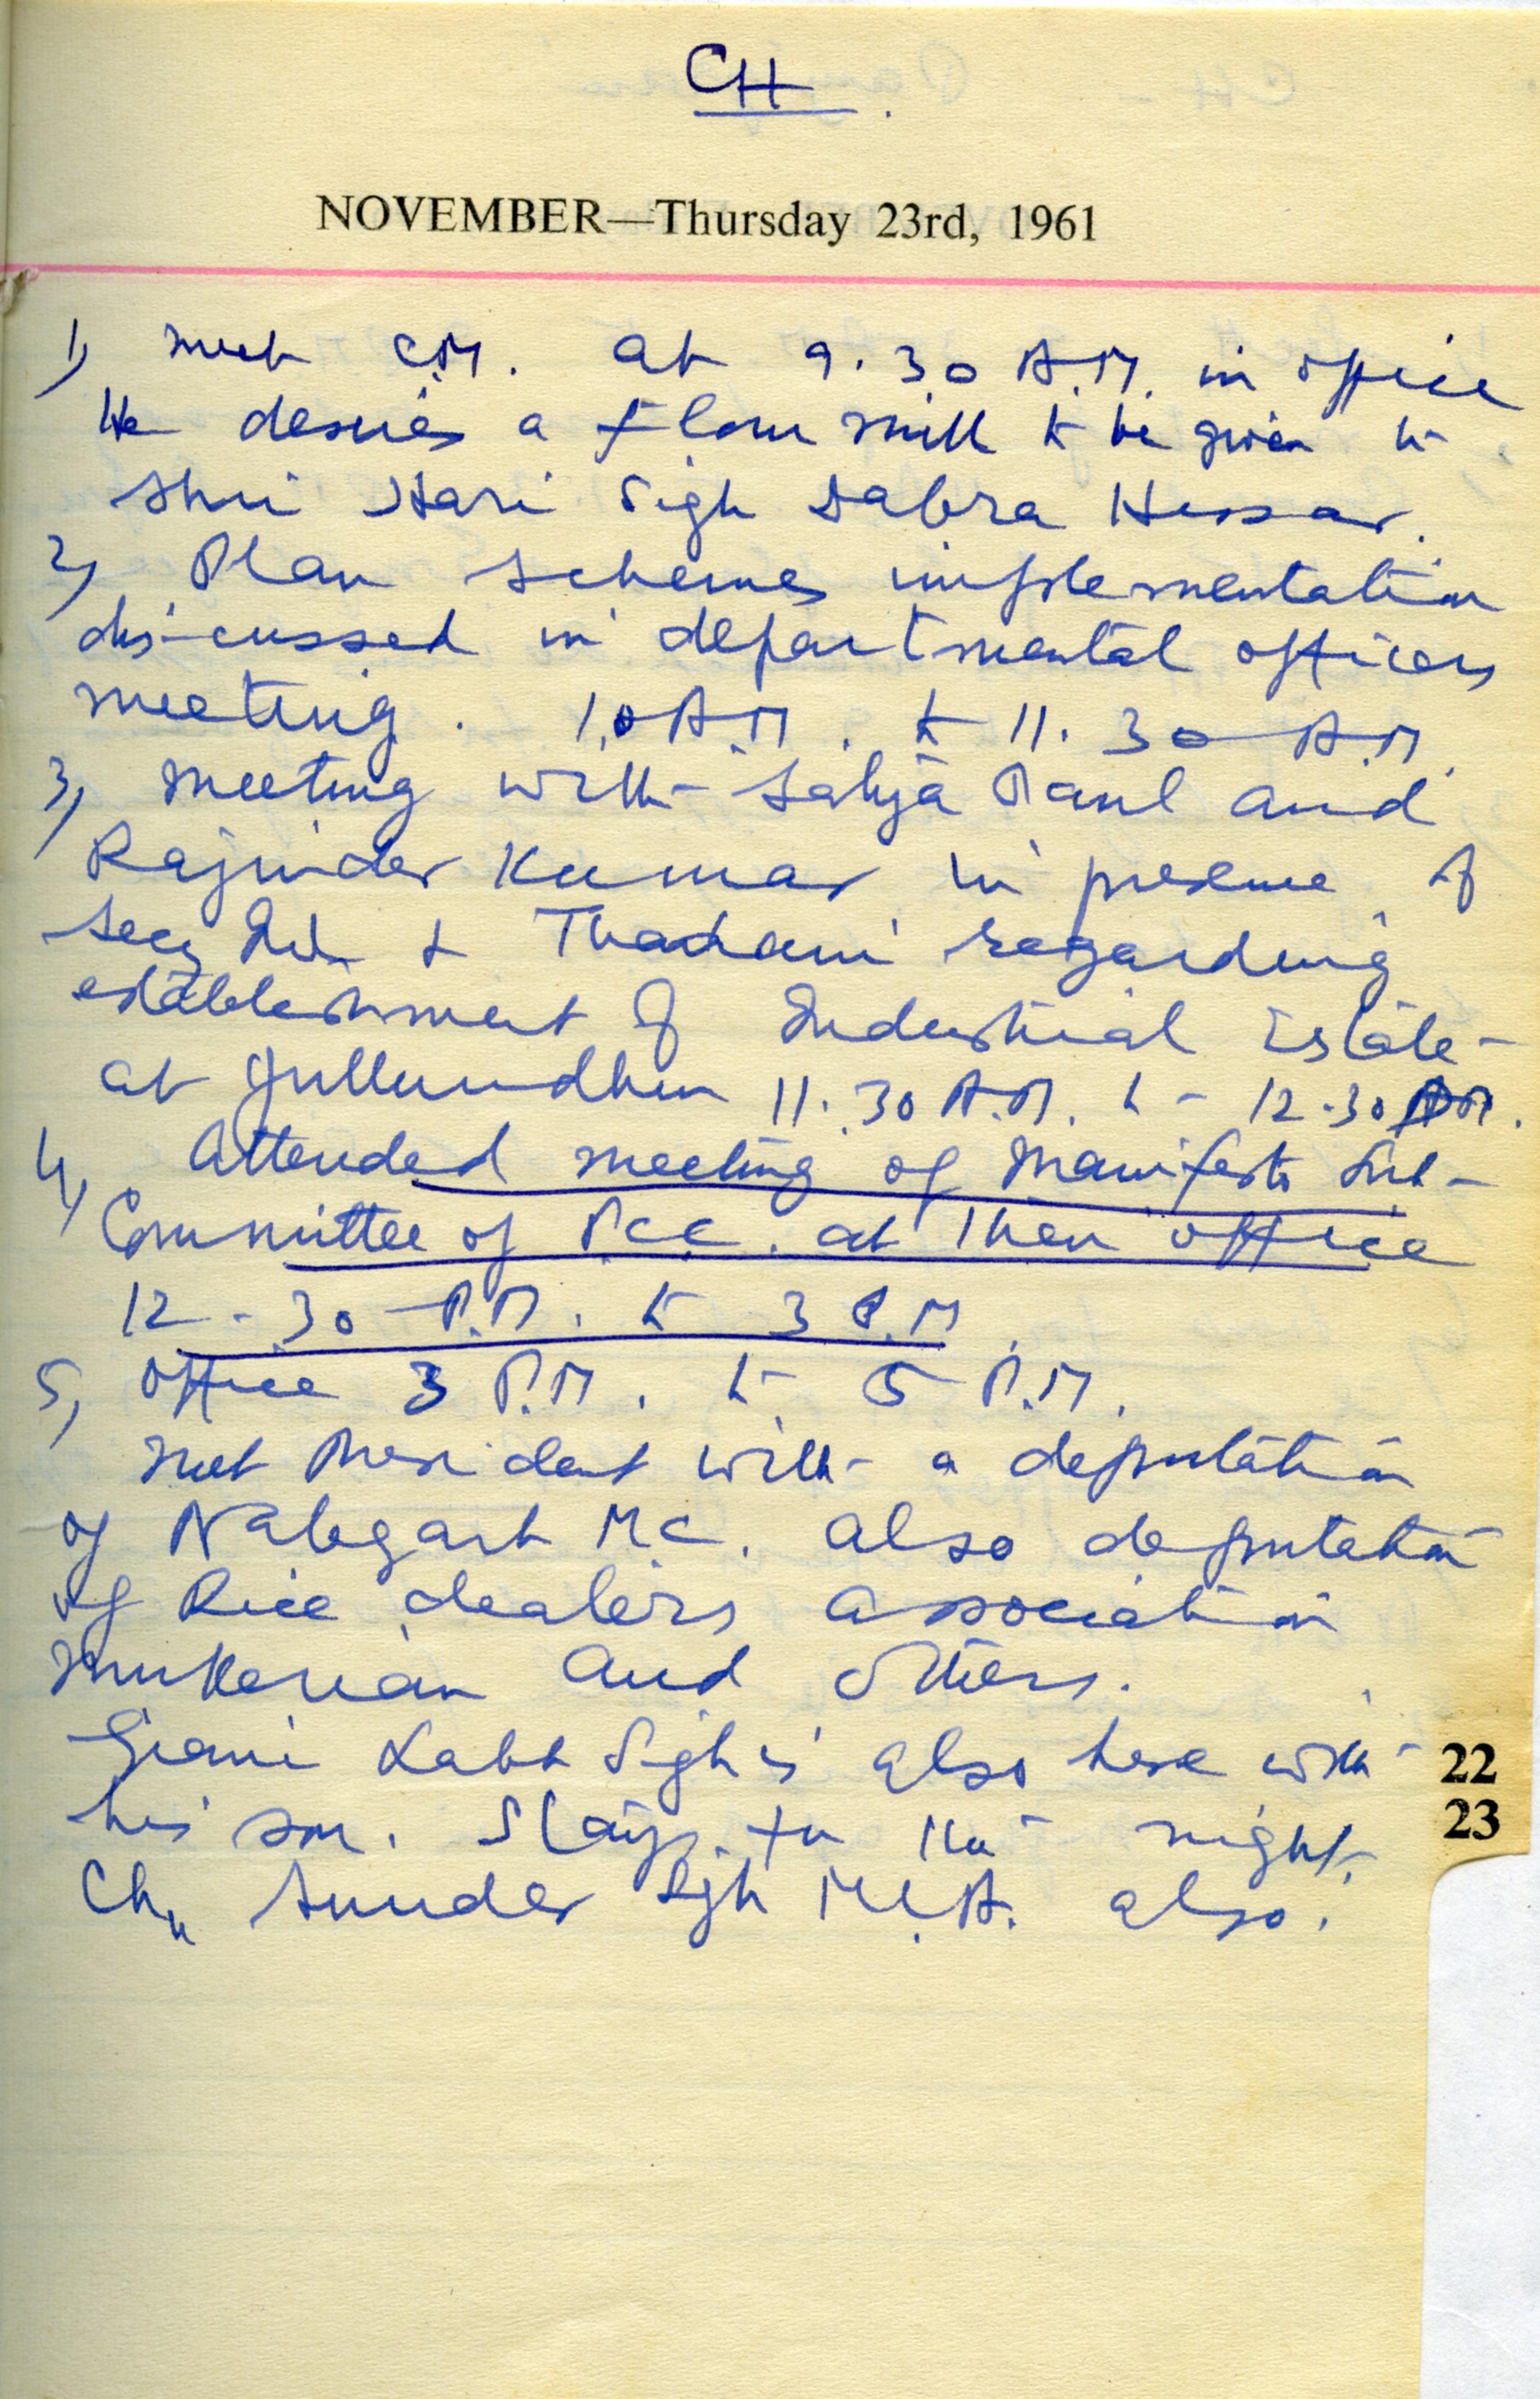 CH.
NOVEMBER—Thursday 23rd, 1961
1) meet C.M. at 9.30 A.M. in office
He desires a Flour mill to be given to
Shri Hari Sigh Dabra Hissar.
2) Plan schemes implementation
discussed in departmental officers
meeting. 10 A.M. to 11.30 A.M.
3) meeting with Satya Paul and
Rajinder Kumar in presence of
Secy Ind. & Thadani regarding
establishment of Industrial Estate
at Jullundhur 11.30 A.M. to 12.30 P.M.
4) Attended meeting of Manifesto Sub-
Committee of P.C.C. at their office
12-30 P.M. to 3 P.M.
5) Office 3 P.M. to 5 P.M.
met President with a deputation
of M.C. also deputation
of Rice dealers association
Mukerian and others.
Giani Labh Sigh is also here with
his son. Stays for the night.
Ch. Sunder Sigh M.L.A. also.
22
23